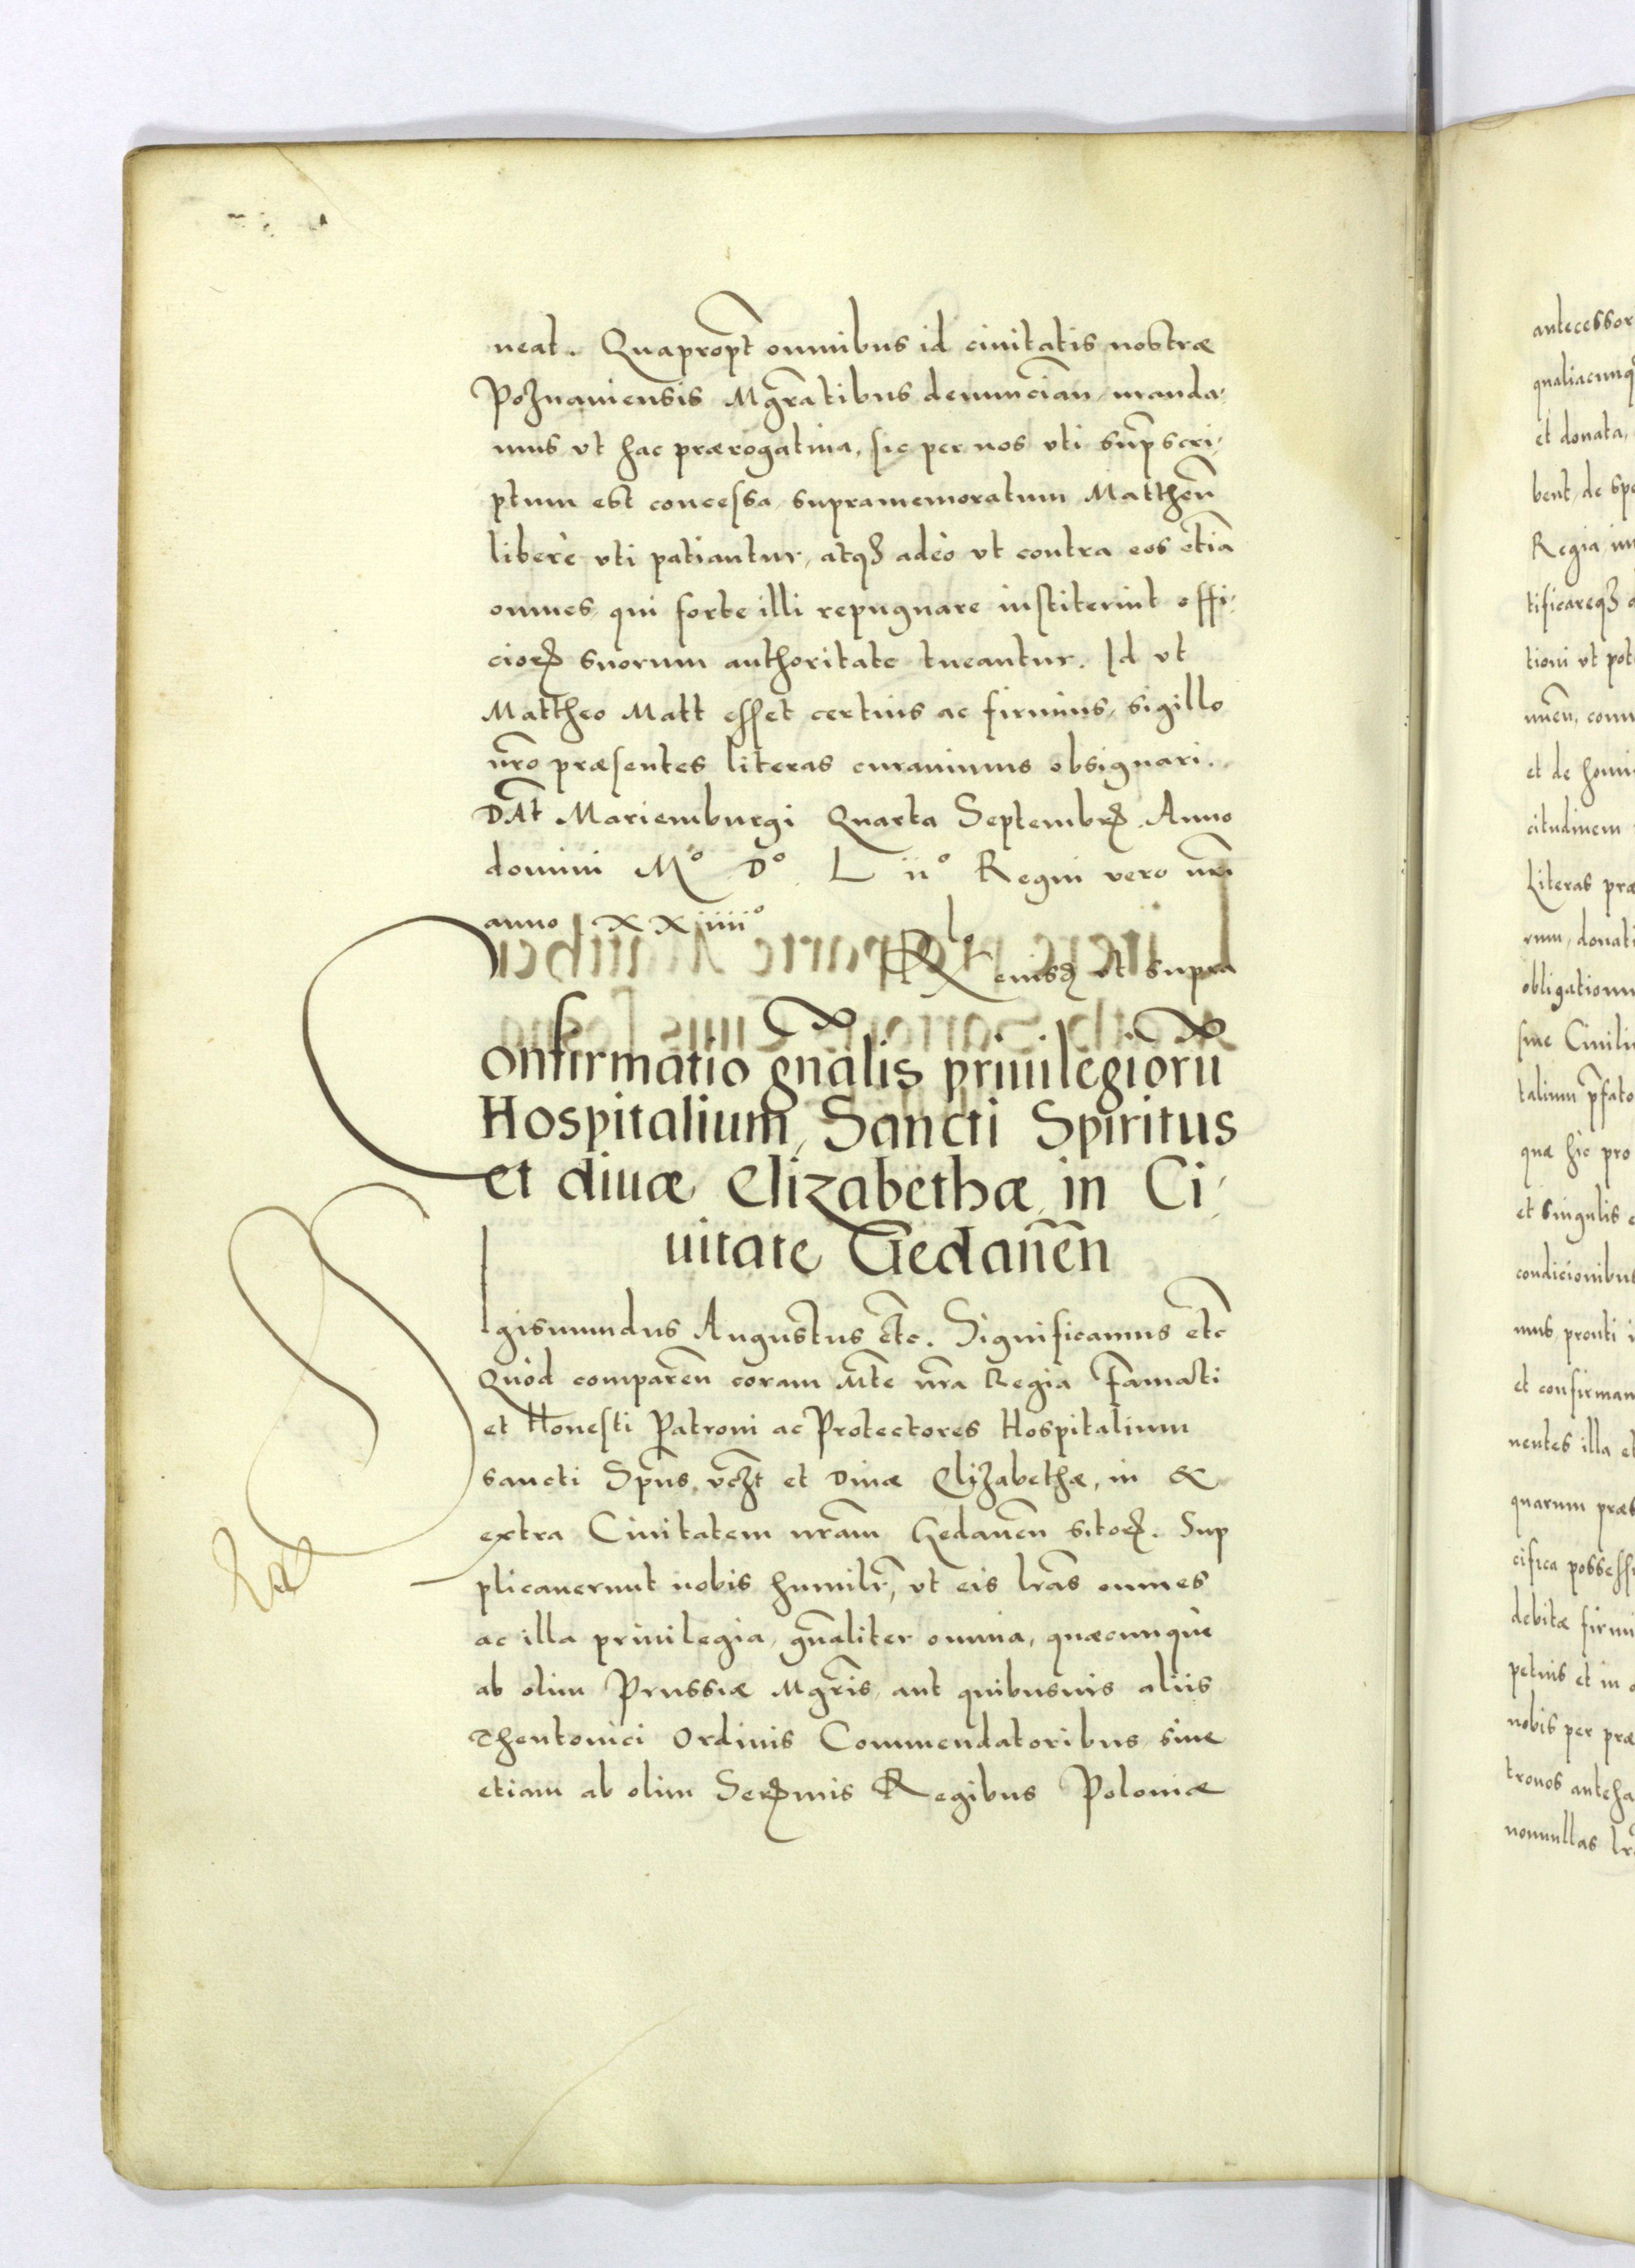 neat. Quapropt̃ omnibus id ciuitatis nostræ
Poznaniensis Mgr̃atibus denuncian̄, manda,
mus vt hac prærogatiua, sic per nos vti sup̃scri,
ptum est concessa, supramemoratum Mattheũ
liberè vti patiantur, atqꝫ adèo vt contra eos et̃ia
omnes, qui forte illi repugnare institerint offi,
cioꝝ suorum authoritate tueantur. Id vt
Mattheo Matt esset certius ac firmius, sigillo
nr̃o præsentes literas curauimus obsignari.
DAt̃ Mariemburgi Quarta Septembrꝭ. Anno
domini Mº Dº L iiº Regni vero nr̃i
anno XXiiiiº
Rlo eiusdꝫ vt supra
Confirmatio gñalis priuilegiorũ
Hospitalium, Sancti Spiritus
et diuæ Elizabethæ, in Ci,
uitate Gedanẽn
SIgismundus Augustus et̃c. Significamus et̃c
Quòd comparẽn coram Mt̃e nr̃a Regia Famati
et Honesti Patroni ac Protectores Hospitalium
sancti Spũs, vꝫt et Diuæ Elizabethæ, in &
extra Ciuitatem nr̃am Gedanẽn sitoꝝ. Sup
plicauerunt nobis humilr̃, vt eis lr̃as omnes
ac illa priuilegia, gñaliter omnia, quæcunquè
ab olim Prussiæ Mgr̃is, aut quibusuis aliis
Theutonici Ordinis Commendatoribus, siue
etiam ab olim Serꝫmis Regibus Poloniæ
antecessor
qualiacunqꝫ
et donata,
bent, de spe
Regia, in
tificareqꝫ
tioni vt pot
et de homi
citudinem
Literas præ
rum, donati
obligationu
siue Ciuili
talium p̃fato
quæ hic pro
et singulis
condicionibus
mus, prouti
et confirman
nentes illa et
quarum præs
cifica possessi
debitæ firmi
petuis et in
nobis per præ
tronos anteha
nonnullas lr̃